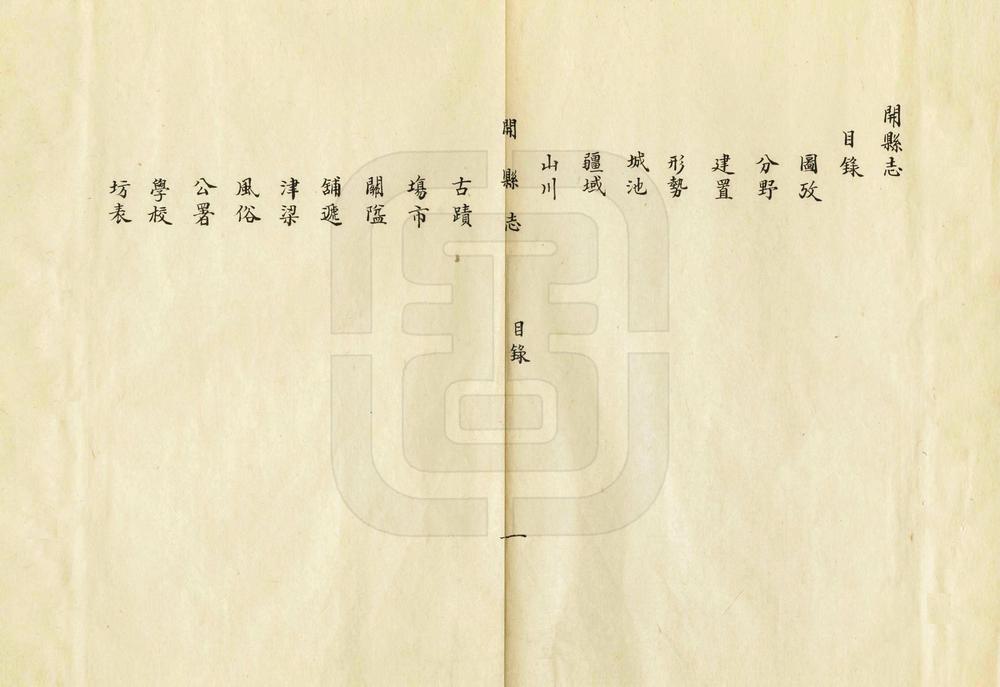 開縣志
目錄
圖攷
分野
建置
形勢
城池
疆域
山川
開縣志
目錄
一
古蹟
塲市
關隘
舖遞
津梁
風俗
公署
學校
坊表